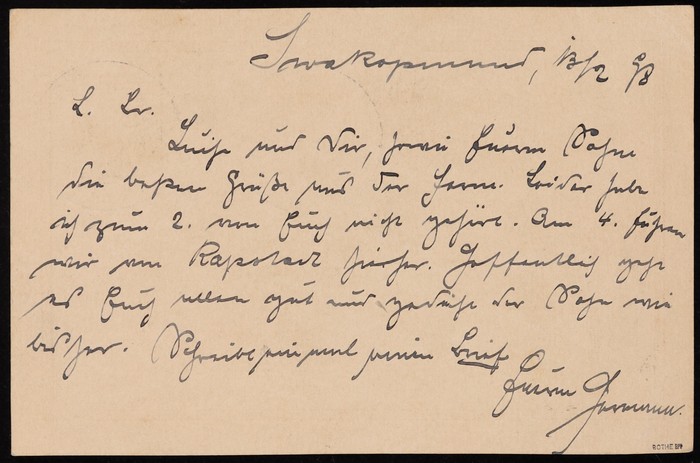 Swakopmund, 13/2 98
L. Br.
Luise und Dir, sowie Eurem Sohne
die besten Grüße aus der Ferne. Leider habe
ich zum 2. von Euch nicht gehört. Am 4. fuhren
wir von Kapstadt hierher. Hoffentlich geht
es Euch allen gut und gedeiht der Sohn wie
bisher. Schreibe mal einen Brief
Euerm Hermann.
ROTHE